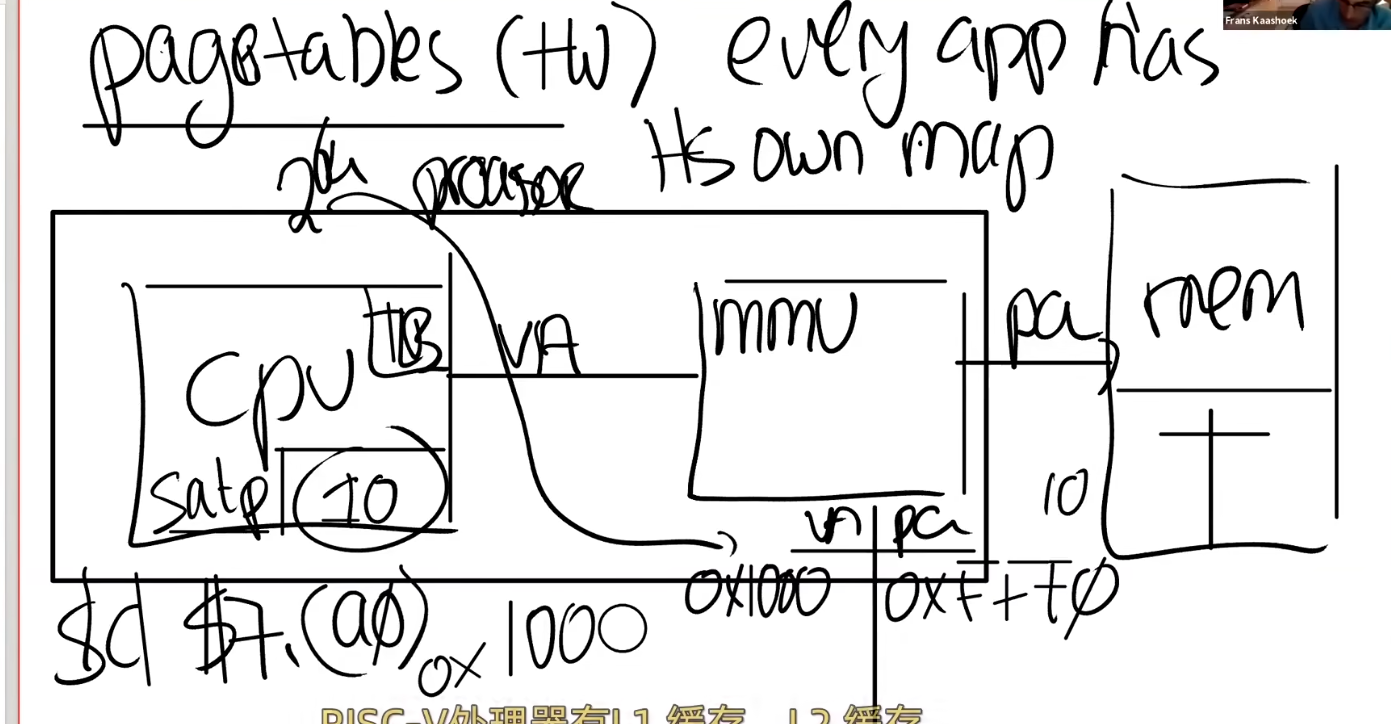 Frans Kaashoek
pagetables (HW) every app has
its own map
cpu
TLB
VA
mmu
pa
mem
satp 10
10
va pa
0x1000 0xfff0
sd $7, (a0)
0x1000
RISC-V处理器有L1 缓存，L2 缓存